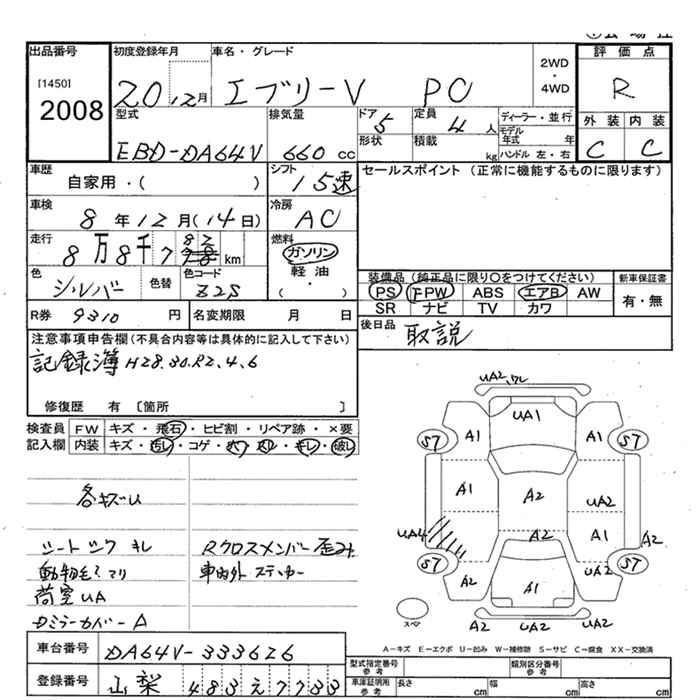 出品番号
[1450]
2008
初度登録年月
20 12月
車名・グレード
エブリーV PC
2WD
・
4WD
評価点
R
型式
EBD-DA64V
排気量
660cc
ドア
5
形状
定員
4人
積載
kg
ディーラー・並行
モデル年式 年
ハンドル 左・右
外装 内装
C C
車歴
自家用・( )
シフト
15速
セールスポイント (正常に機能するものに限ります)
車検
8年12月(14日)
冷房
AC
走行
8万8千7 km
燃料
ガソリン
軽油・
( ・ )
色
シルバー
色替
色コード
Z2S
装備品 (純正品に限り○をつけてください)
PS PW ABS エアB AW
SR ナビ TV カワ
新車保証書
有・無
R券 9310円
名変期限 月 日
後日品
取説
注意事項申告欄(不具合内容は具体的に記入して下さい)
記録簿 H28.30.R2.4.6
修復歴 有 〔箇所 〕
検査員 FW キズ・飛石・ヒビ割・リペア跡・×要
記入欄 内装 キズ・汚し・コゲ・穴・スレ・キレ・破し
各キズU
シートシワ キレ
荷室UA
Dミラーカバー A
Rクロスメンバー歪み
車内外ステッカー
UA2
UA1
S7 A1 A1 S7
A1 A2 UA2
UA4 A2 A1 A2
S7 A2 A1 UA2 S7
スペア
A2 UA2 UA2
A－キズ E－エクボ U－凹み W－補修跡 S－サビ C－腐食 XX－交換済
車台番号
DA64V-333626
型式指定番号
参考
類別区分番号
参考
登録番号
山梨 483え7733
車庫証明用
参考
長さ cm
幅 cm
高さ cm